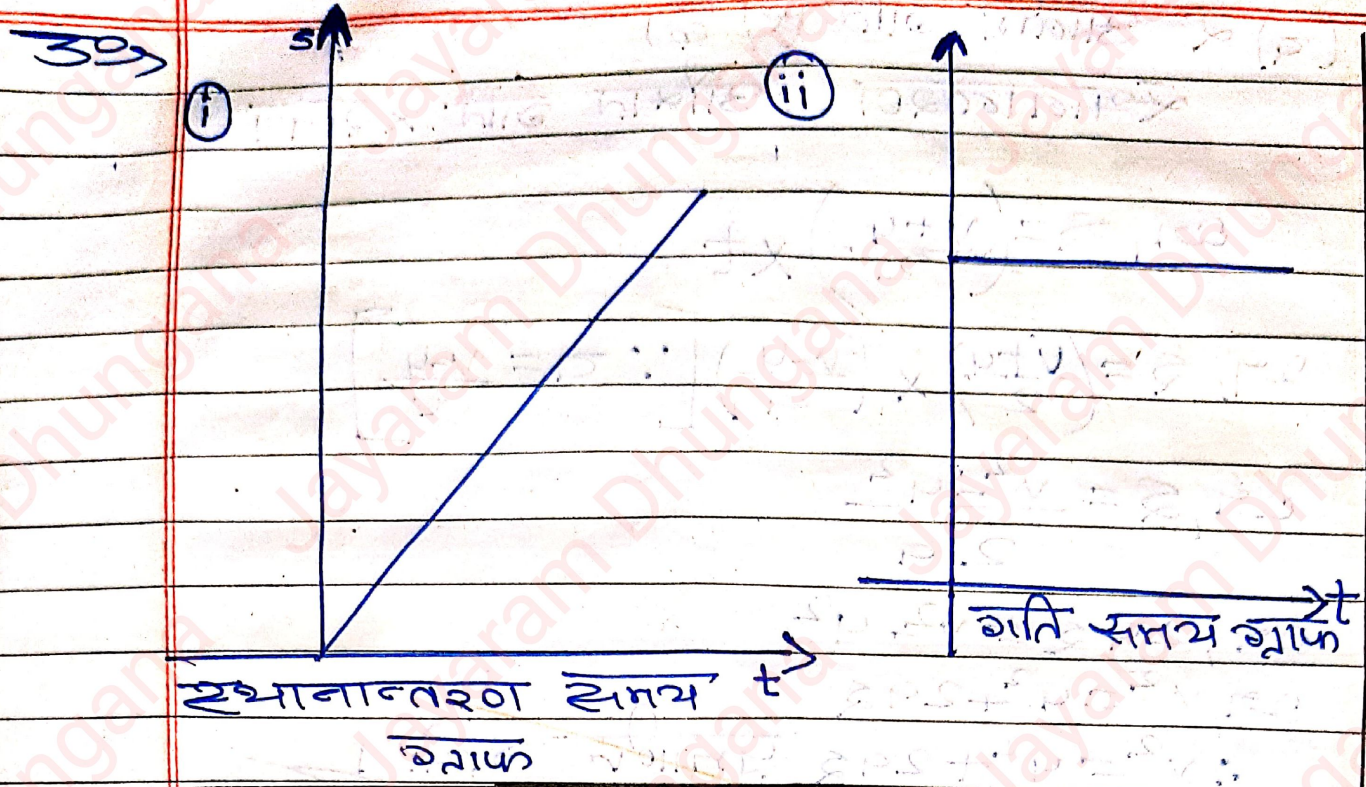 उ०>
s
i
ii
t
स्थानान्तरण समय
ग्राफ
t
गति समय ग्राफ
Jayaram Dhungana